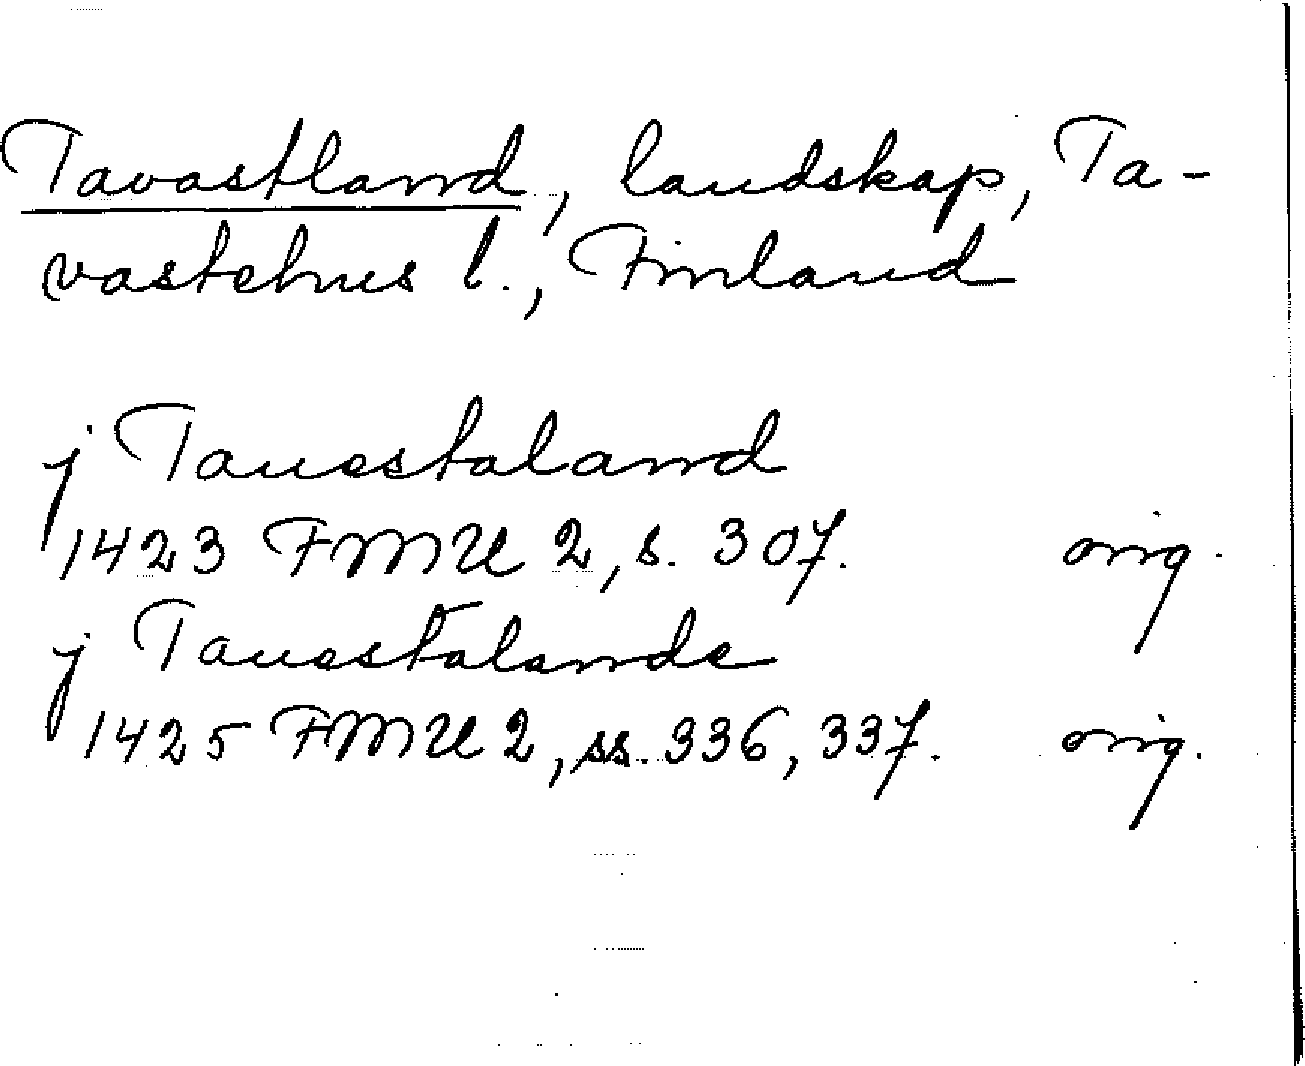 Tavastland, landskap, Ta-
vastehus l., Finland
j Tauestaland
1423 FMU 2, s. 307. orig.
j Tauestalande
1425 FMU 2, ss. 336, 337. orig.